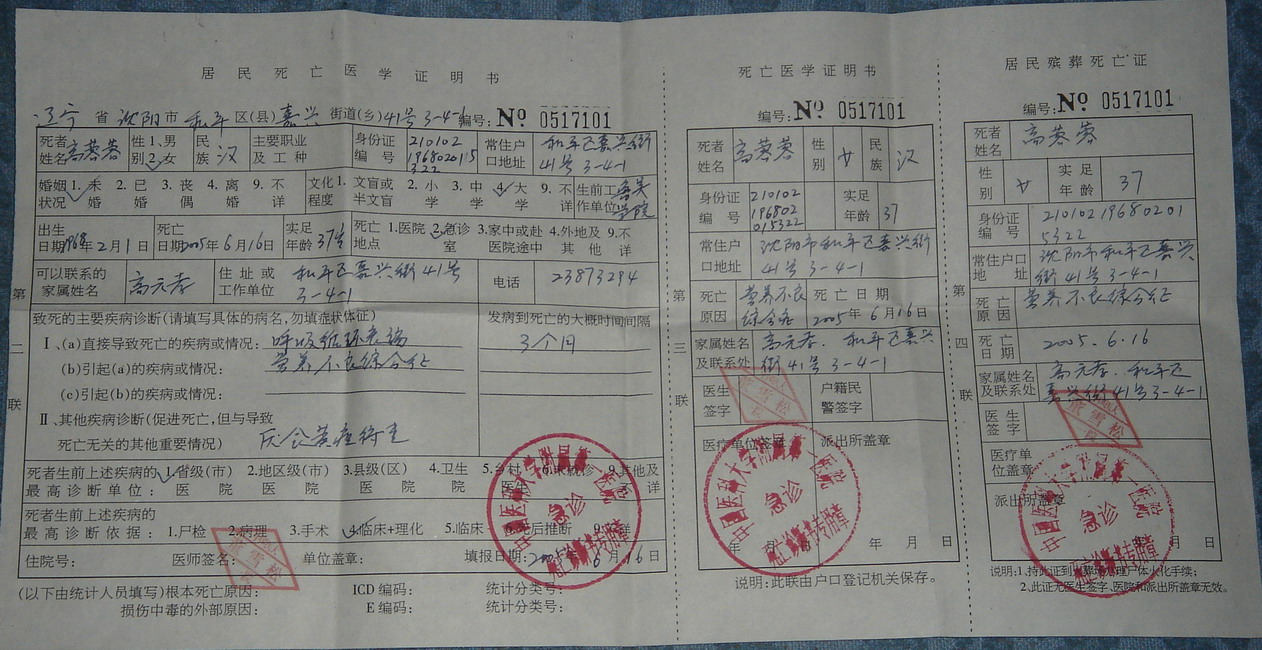 居民死亡医学证明书
辽宁省沈阳市和平区(县)嘉兴街道(乡)41号3-4-1 编号:Nº 0517101
死者姓名 高蓉蓉 性别 1.男 2.女 民族 汉 主要职业及工种 身份证编号 210102196802015322 常住户口地址 和平区嘉兴街41号3-4-1
婚姻状况 1.未婚 2.已婚 3.丧偶 4.离婚 9.不详 文化程度 1.文盲或半文盲 2.小学 3.中学 4.大学 9.不详 生前工作单位 鲁美学院
出生日期1968年2月1日 死亡日期2005年6月16日 实足年龄37岁 死亡地点 1.医院 2.急诊室 3.家中或赴医院途中 4.外地及其他 9.不详
可以联系的家属姓名 高元孝 住址或工作单位 和平区嘉兴街41号3-4-1 电话 23873294
致死的主要疾病诊断(请填写具体的病名,勿填症状体征) 发病到死亡的大概时间间隔
Ⅰ、(a)直接导致死亡的疾病或情况: 呼吸循环衰竭 3个月
(b)引起(a)的疾病或情况: 营养不良综合征
(c)引起(b)的疾病或情况:
Ⅱ、其他疾病诊断(促进死亡,但与导致
死亡无关的其他重要情况)
死者生前上述疾病的最高诊断单位: 1.省级(市)医院 2.地区级(市)医院 3.县级(区)医院 4.卫生院 5.乡村医生 6.未就诊 9.其他及不详
死者生前上述疾病的最高诊断依据: 1.尸检 2.病理 3.手术 4.临床+理化 5.临床 6.死后推断 9.不详
住院号: 医师签名: 单位盖章: 填报日期:2005年6月16日
(以下由统计人员填写)根本死亡原因: ICD编码: 统计分类号:
损伤中毒的外部原因: E编码: 统计分类号:
第二联
中国医科大学附属第一医院
急诊
死亡诊断书专用章
董雪松
死亡医学证明书
编号:Nº 0517101
死者姓名 高蓉蓉 性别 女 民族 汉
身份证编号 210102196802015322 实足年龄 37
常住户口地址 沈阳市和平区嘉兴街41号3-4-1
死亡原因 营养不良综合症 死亡日期 2005年6月16日
家属姓名及联系处 高元孝. 和平区嘉兴街41号3-4-1
医生签字 户籍民警签字
医疗单位盖章 派出所盖章
年 月 日 年 月 日
说明:此联由户口登记机关保存。
第三联
中国医科大学附属第一医院
急诊
死亡诊断书专用章
董雪松
居民殡葬死亡证
编号:Nº 0517101
死者姓名 高蓉蓉
性别 女 实足年龄 37
身份证编号 210102196802015322
常住户口地址 沈阳市和平区嘉兴街41号3-4-1
死亡原因 营养不良综合征
死亡日期 2005.6.16
家属姓名及联系处 高元孝. 和平区嘉兴街41号3-4-1
医生签字
医疗单位盖章
派出所盖章
年 月 日
说明:1.持此证到殡葬馆办理尸体火化手续;
2.此证无医生签字、医院和派出所盖章无效。
第四联
中国医科大学附属第一医院
急诊
死亡诊断书专用章
董雪松